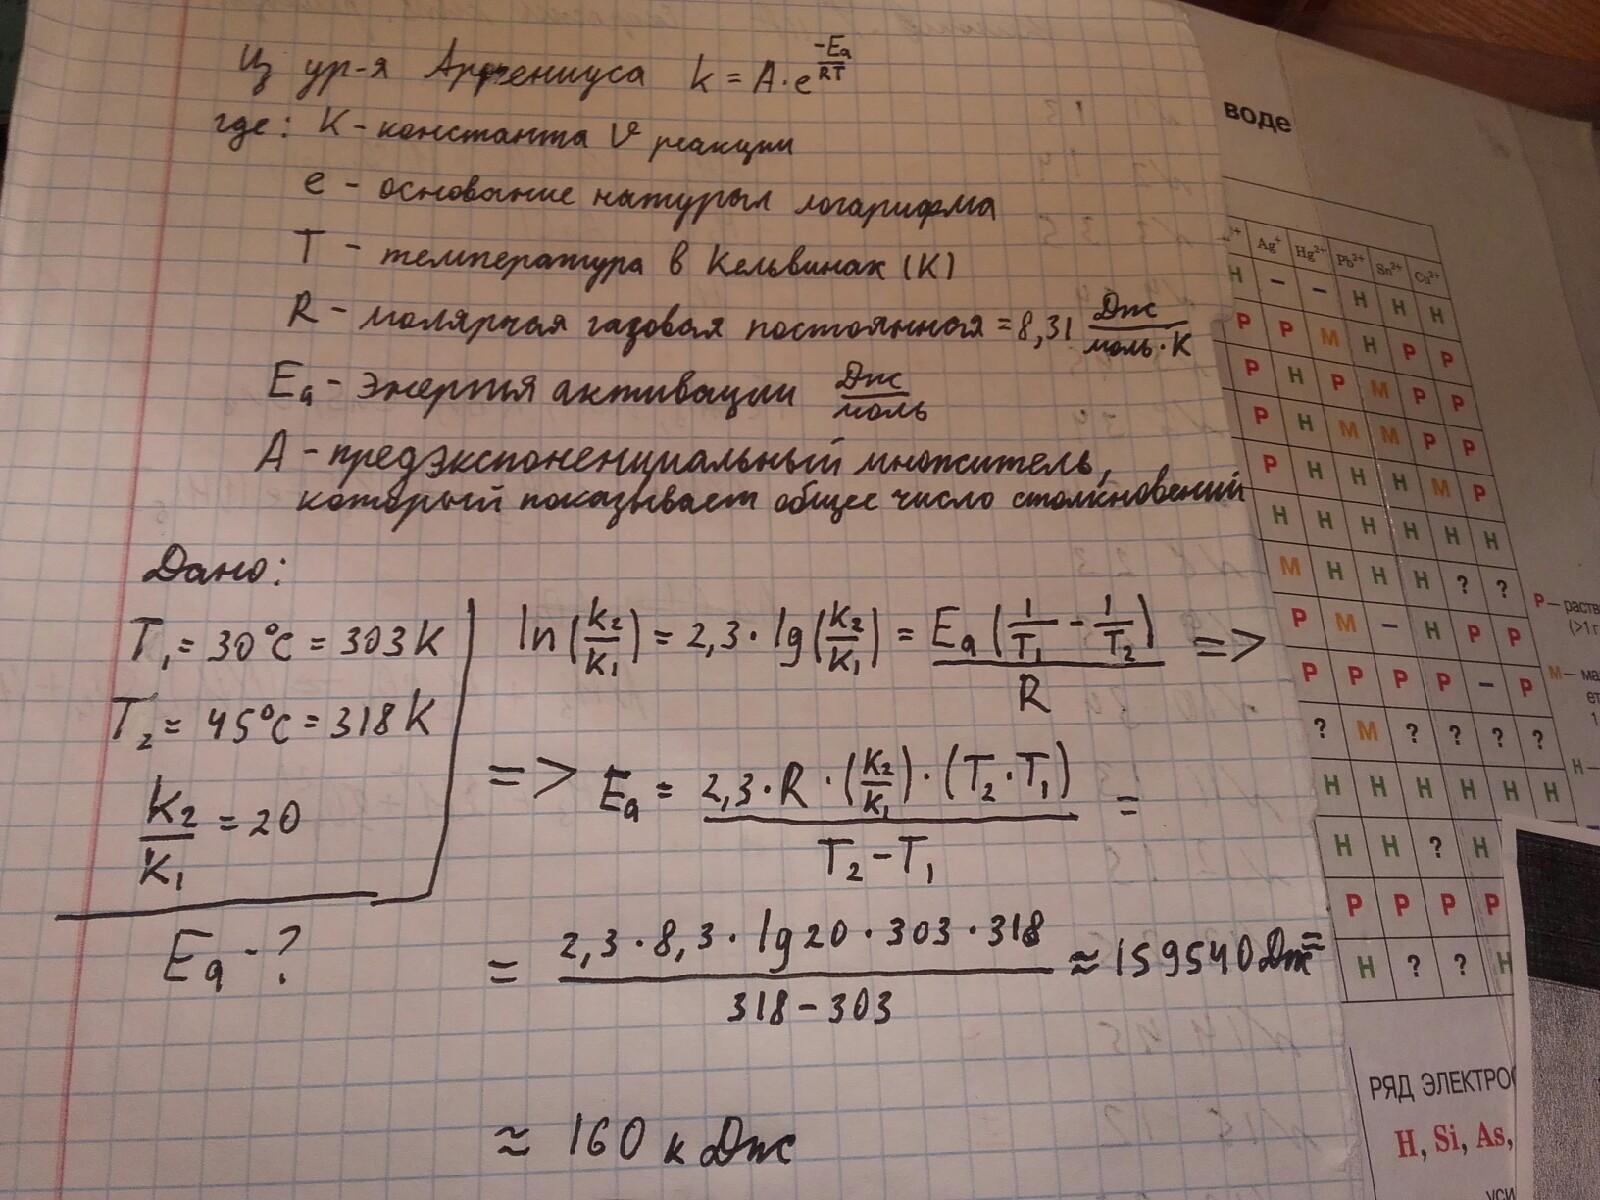 Из ур-я Аррениуса k = A·e^(-Ea/RT)
где: K - константа V реакции
e - основание натурал логарифма
T - температура в Кельвинах (K)
R - молярная газовая постоянная = 8,31 Дж/моль·K
Ea - энергия активации Дж/моль
A - предэкспоненциальный множитель,
который показывает общее число столкновений
Дано:
T₁ = 30°C = 303K
T₂ = 45°C = 318K
K₂/K₁ = 20
Ea - ?
ln(K₂/K₁) = 2,3·lg(K₂/K₁) = Ea(1/T₁ - 1/T₂)/R =>
=> Ea = 2,3·R·(K₂/K₁)·(T₂·T₁)/T₂-T₁ =
= 2,3·8,3·lg20·303·318/318-303 ≈ 159540 Дж =
≈ 160 кДж
воде
Ag⁺ Hg²⁺ Pb²⁺ Sn²⁺ Cu²⁺
Н – – Н Н Н
Р Р М Н Р Р
Р Н Р М Р Р
Р Н М М Р Р
Р Н Н Н М Р
Н Н Н Н Н Н
М Н Н Н ? ?
Р М – Н Р Р
Р Р Р Р – Р
? М ? ? ? ?
Н Н Н Н Н Н
Н Н ? Н
Р Р Р Р
Н ? ? Н
Р — раств
(>1 г
М — ма
ет
1
Н —
РЯД ЭЛЕКТРО
H, Si, As,
уси